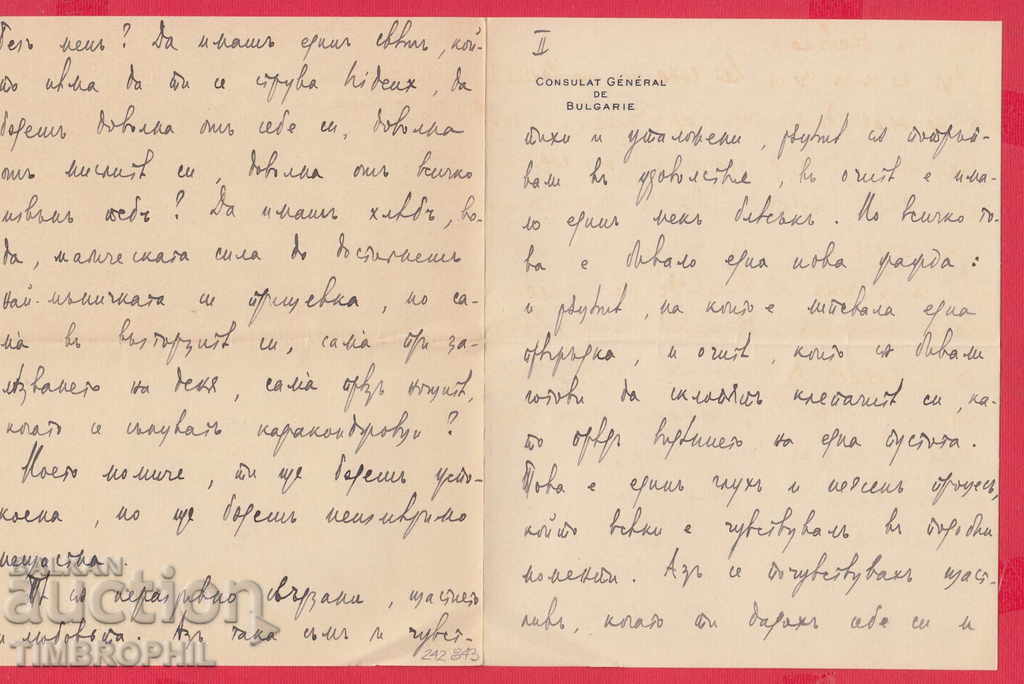 безъ менъ? Да имашъ единъ свѣтъ, кой-
то нѣма да ти се струва hideux, да
бѫдешъ доволна отъ себе си, доволна
отъ мислитѣ си, доволна отъ всичко
извънъ тебъ? Да имашъ хлѣбъ, во-
да, магическата сила да достигнешъ
най-мъничката си прищевка, но са-
ма въ възторзитѣ си, сама при за-
лѣзването на деня, сама презъ нощитѣ,
когато се сънуватъ караконджовци?
Моето момиче, ти ще бѫдешъ успо-
коена, но ще бѫдешъ неизмѣримо
нещастна.
Тѣ сѫ неразривно свързани, щастието
и любовьта. Азъ така съмъ и чувст-
242 843
II
CONSULAT GÉNÉRAL
DE
BULGARIE
тихи и уталожени, рѫцетѣ сѫ потръп-
вали въ удоволствие, въ очитѣ е има-
ло единъ мекъ блѣсъкъ. Но всичко то-
ва е бивало една нова фарда:
и рѫцетѣ, на които е липсвала една
прегръдка, и очитѣ, които сѫ бивали
готови да склопятъ клепачитѣ си, ка-
то предъ видѣнието на една пустота.
Това е единъ глухъ и неясенъ процесъ,
който всѣки е чувствувалъ въ подобни
моменти. Азъ се почувствувахъ щаст-
ливъ, когато ти дадохъ себе си и
BALKAN
auction
TIMBROPHIL